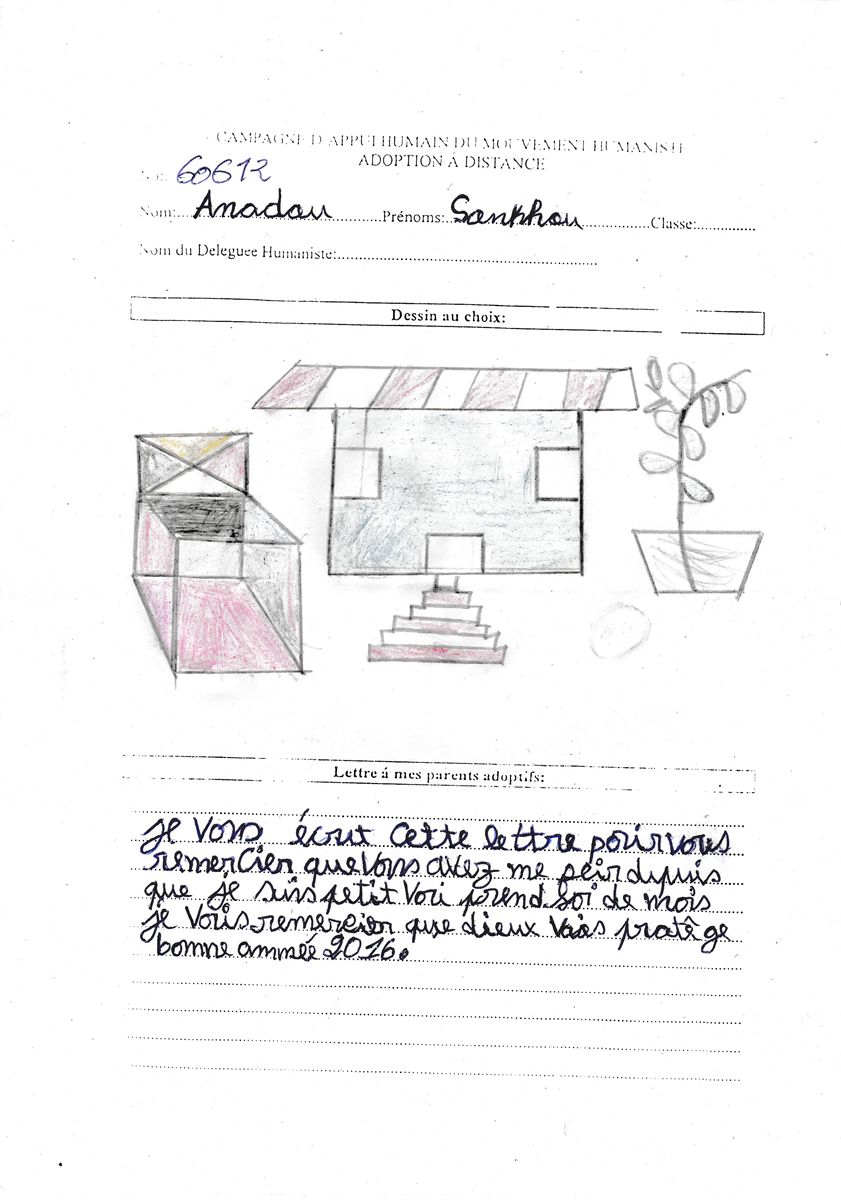 CAMPAGNE D'APPUI HUMAIN DU MOUVEMENT HUMANISTE
ADOPTION À DISTANCE
60612
Nom:... Anadau ...Prénoms: Sankhou ...Classe:...
Nom du Deleguee Humaniste:...
Dessin au choix:
Lettre á mes parents adoptifs:
je vous écrit cette lettre pour vous
remercier que vous avez me depuis
que je suis petit prend soi de mois
je vous remercier que dieux vous protège
bonne année 2016.